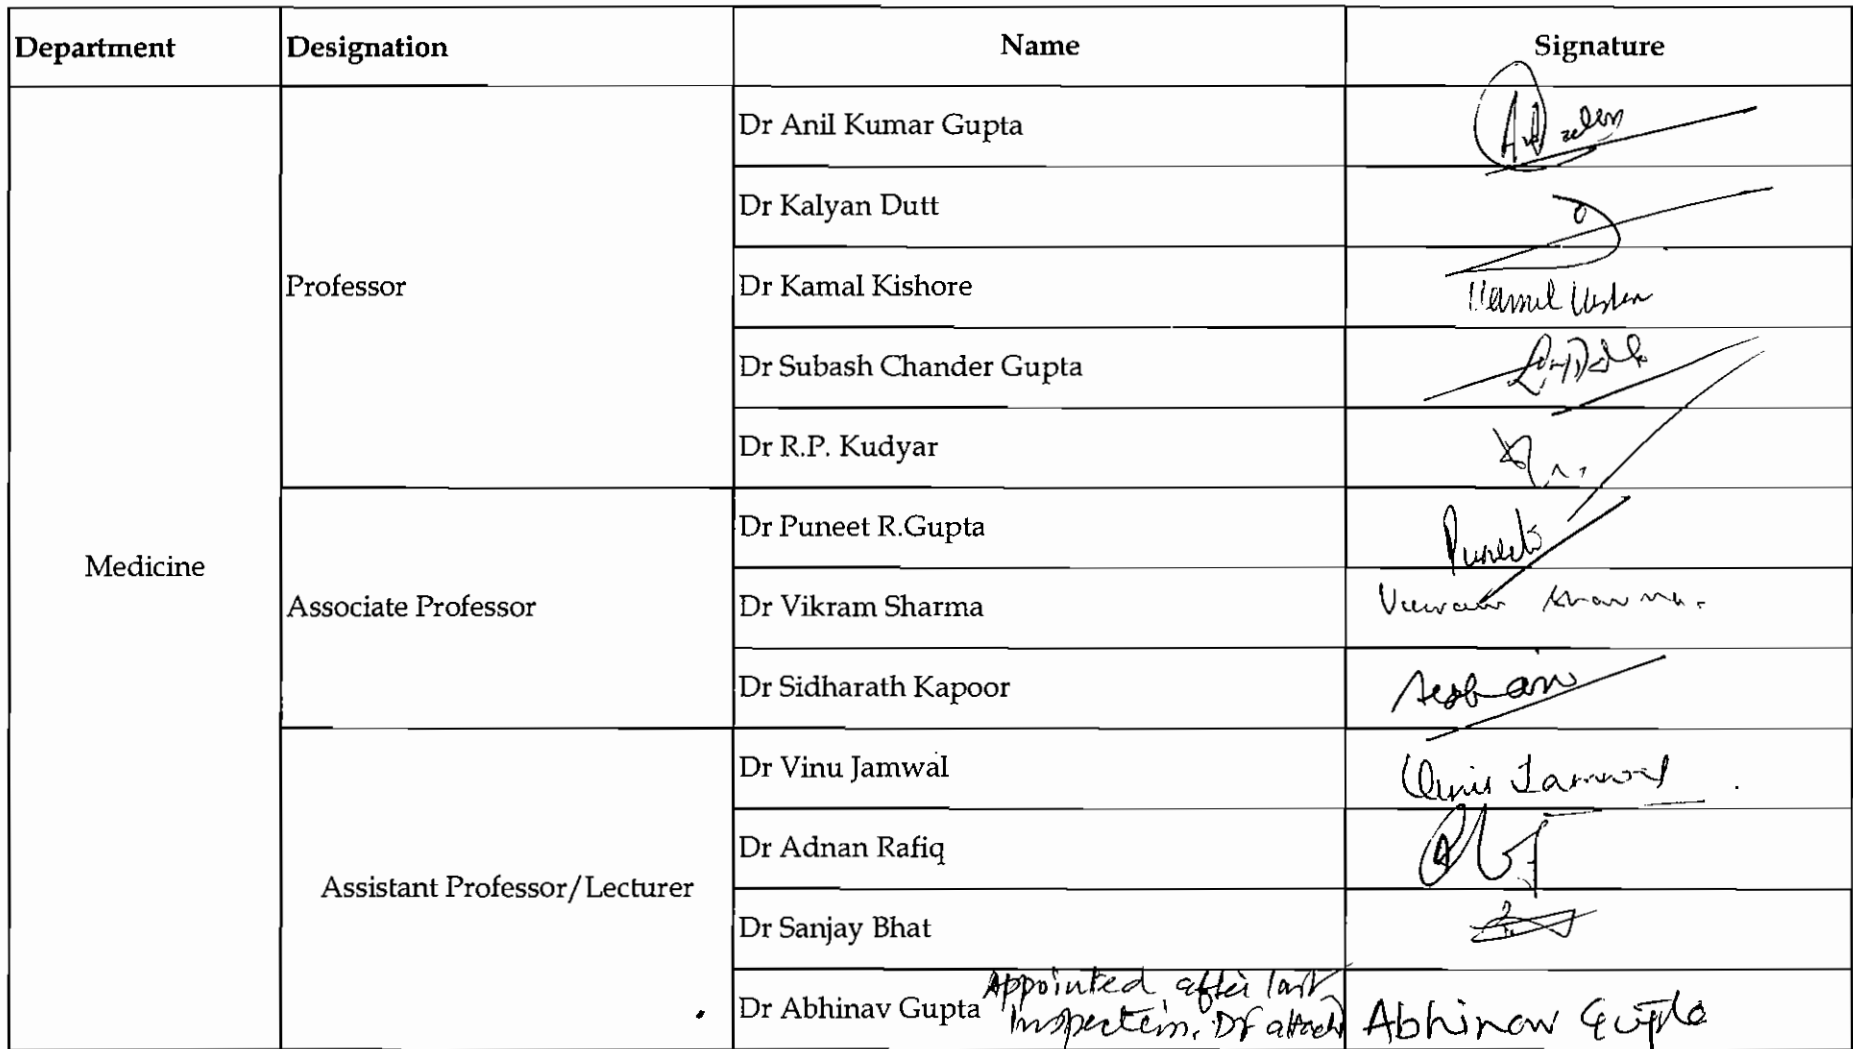 Department Designation Name Signature
Medicine
Professor
Dr Anil Kumar Gupta
Dr Kalyan Dutt
Dr Kamal Kishore
Dr Subash Chander Gupta
Dr R.P. Kudyar
Associate Professor
Dr Puneet R.Gupta Puneet
Dr Vikram Sharma
Dr Sidharath Kapoor
Assistant Professor/Lecturer
Dr Vinu Jamwal Vinu Jamwal
Dr Adnan Rafiq
Dr Sanjay Bhat
Dr Abhinav Gupta Appointed after last Abhinav Gupta
Inspection. DF attach